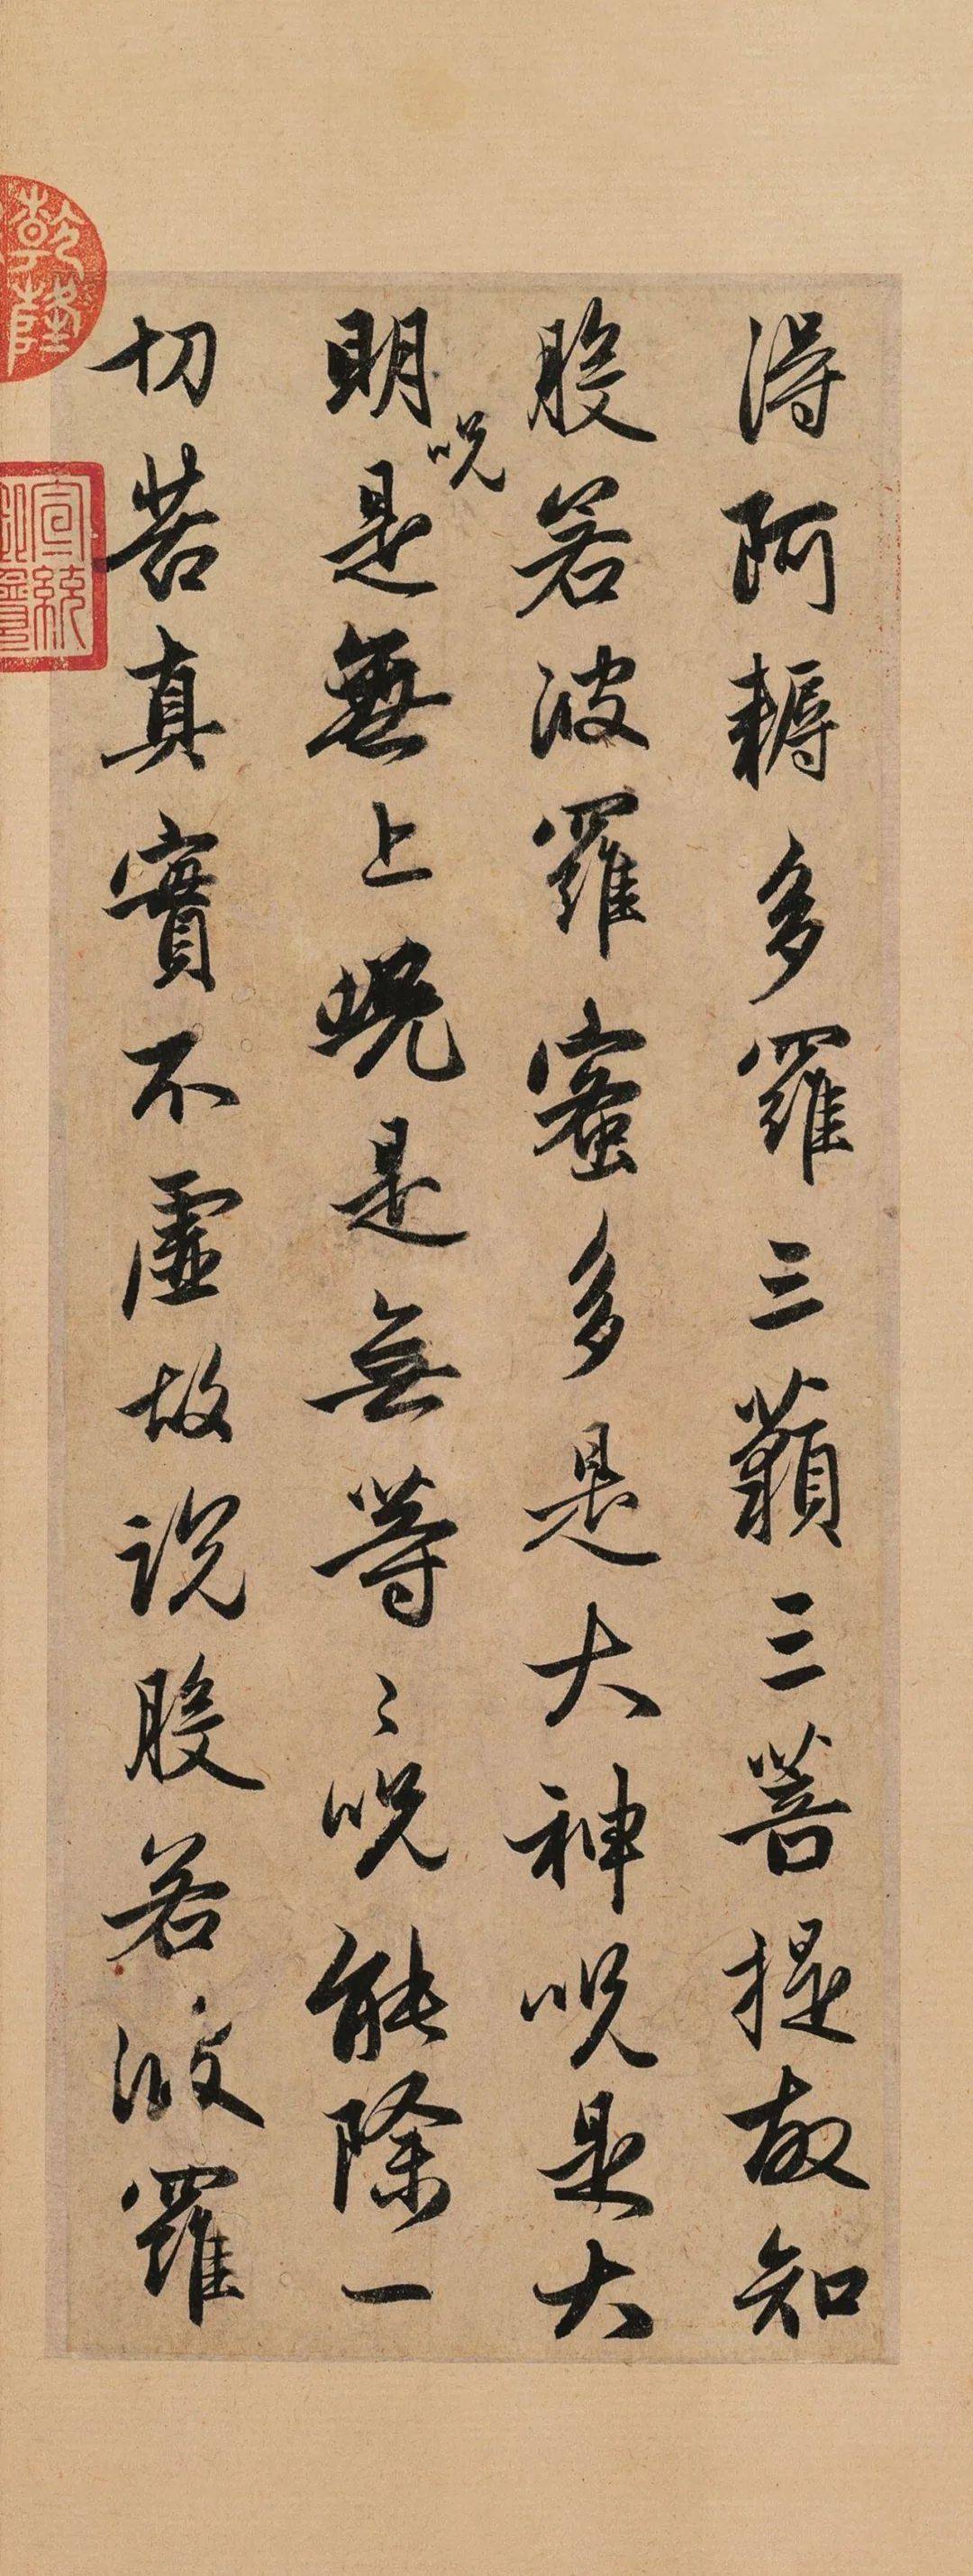 得阿耨多羅三藐三菩提故知
般若波羅蜜多是大神呪是大
明呪是無上呪是無等〻呪能除一
切苦真實不虛故說般若波羅
乾隆
宣統